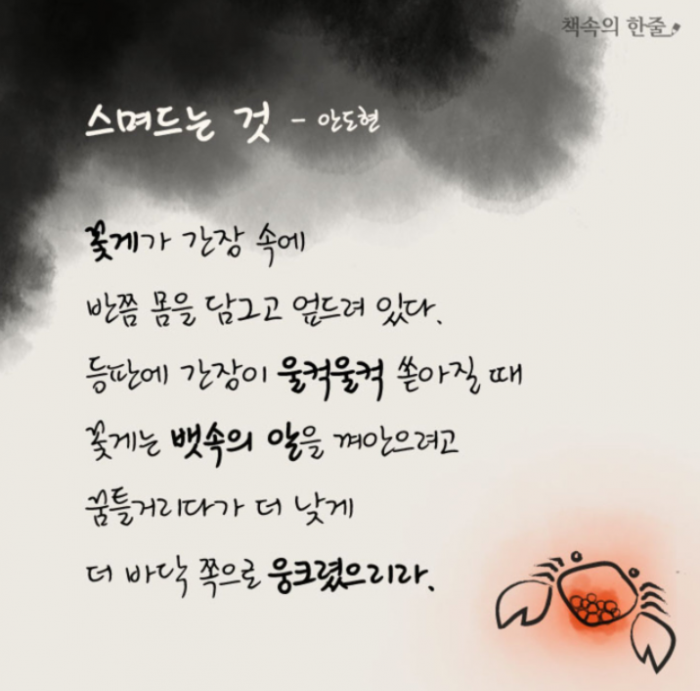 책속의 한줄
스며드는 것 - 안도현
꽃게가 간장 속에
반쯤 몸을 담그고 엎드려 있다.
등판에 간장이 울컥울컥 쏟아질 때
꽃게는 뱃속의 알을 껴안으려고
꿈틀거리다가 더 낮게
더 바닥 쪽으로 웅크렸으리라.